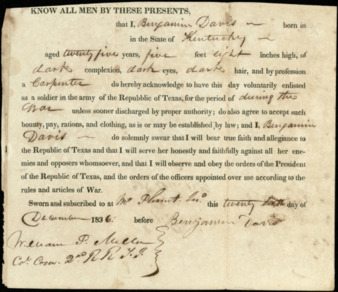 KNOW ALL MEN BY THESE PRESENTS,
that I, Benjamin Davis born
in the State of Kentucky
aged twenty five years, five feet eight inches high, of
dark complexion, dark eyes, dark hair, and by profession
a Carpenter do hereby acknowledge to have this day voluntarily enlisted
as a soldier in the army of the Republic of Texas, for the period of during the
War unless sooner discharged by proper authority; do also agree to accept such
bounty, pay, rations, and clothing, as is or may be established by law; and I, Benjamin
Davis do solemnly swear that I will bear true faith and allegiance to
the Republic of Texas and that I will serve her honestly and faithfully against all her ene-
mies and opposers whomsoever, and that I will observe and obey the orders of the President
of the Republic of Texas, and the orders of the officers appointed over me according to the
rules and articles of War.
Sworn and subscribed to at this twenty day of
December 1836 before Benjamin Davis
William P. Miller
Col. 2nd R